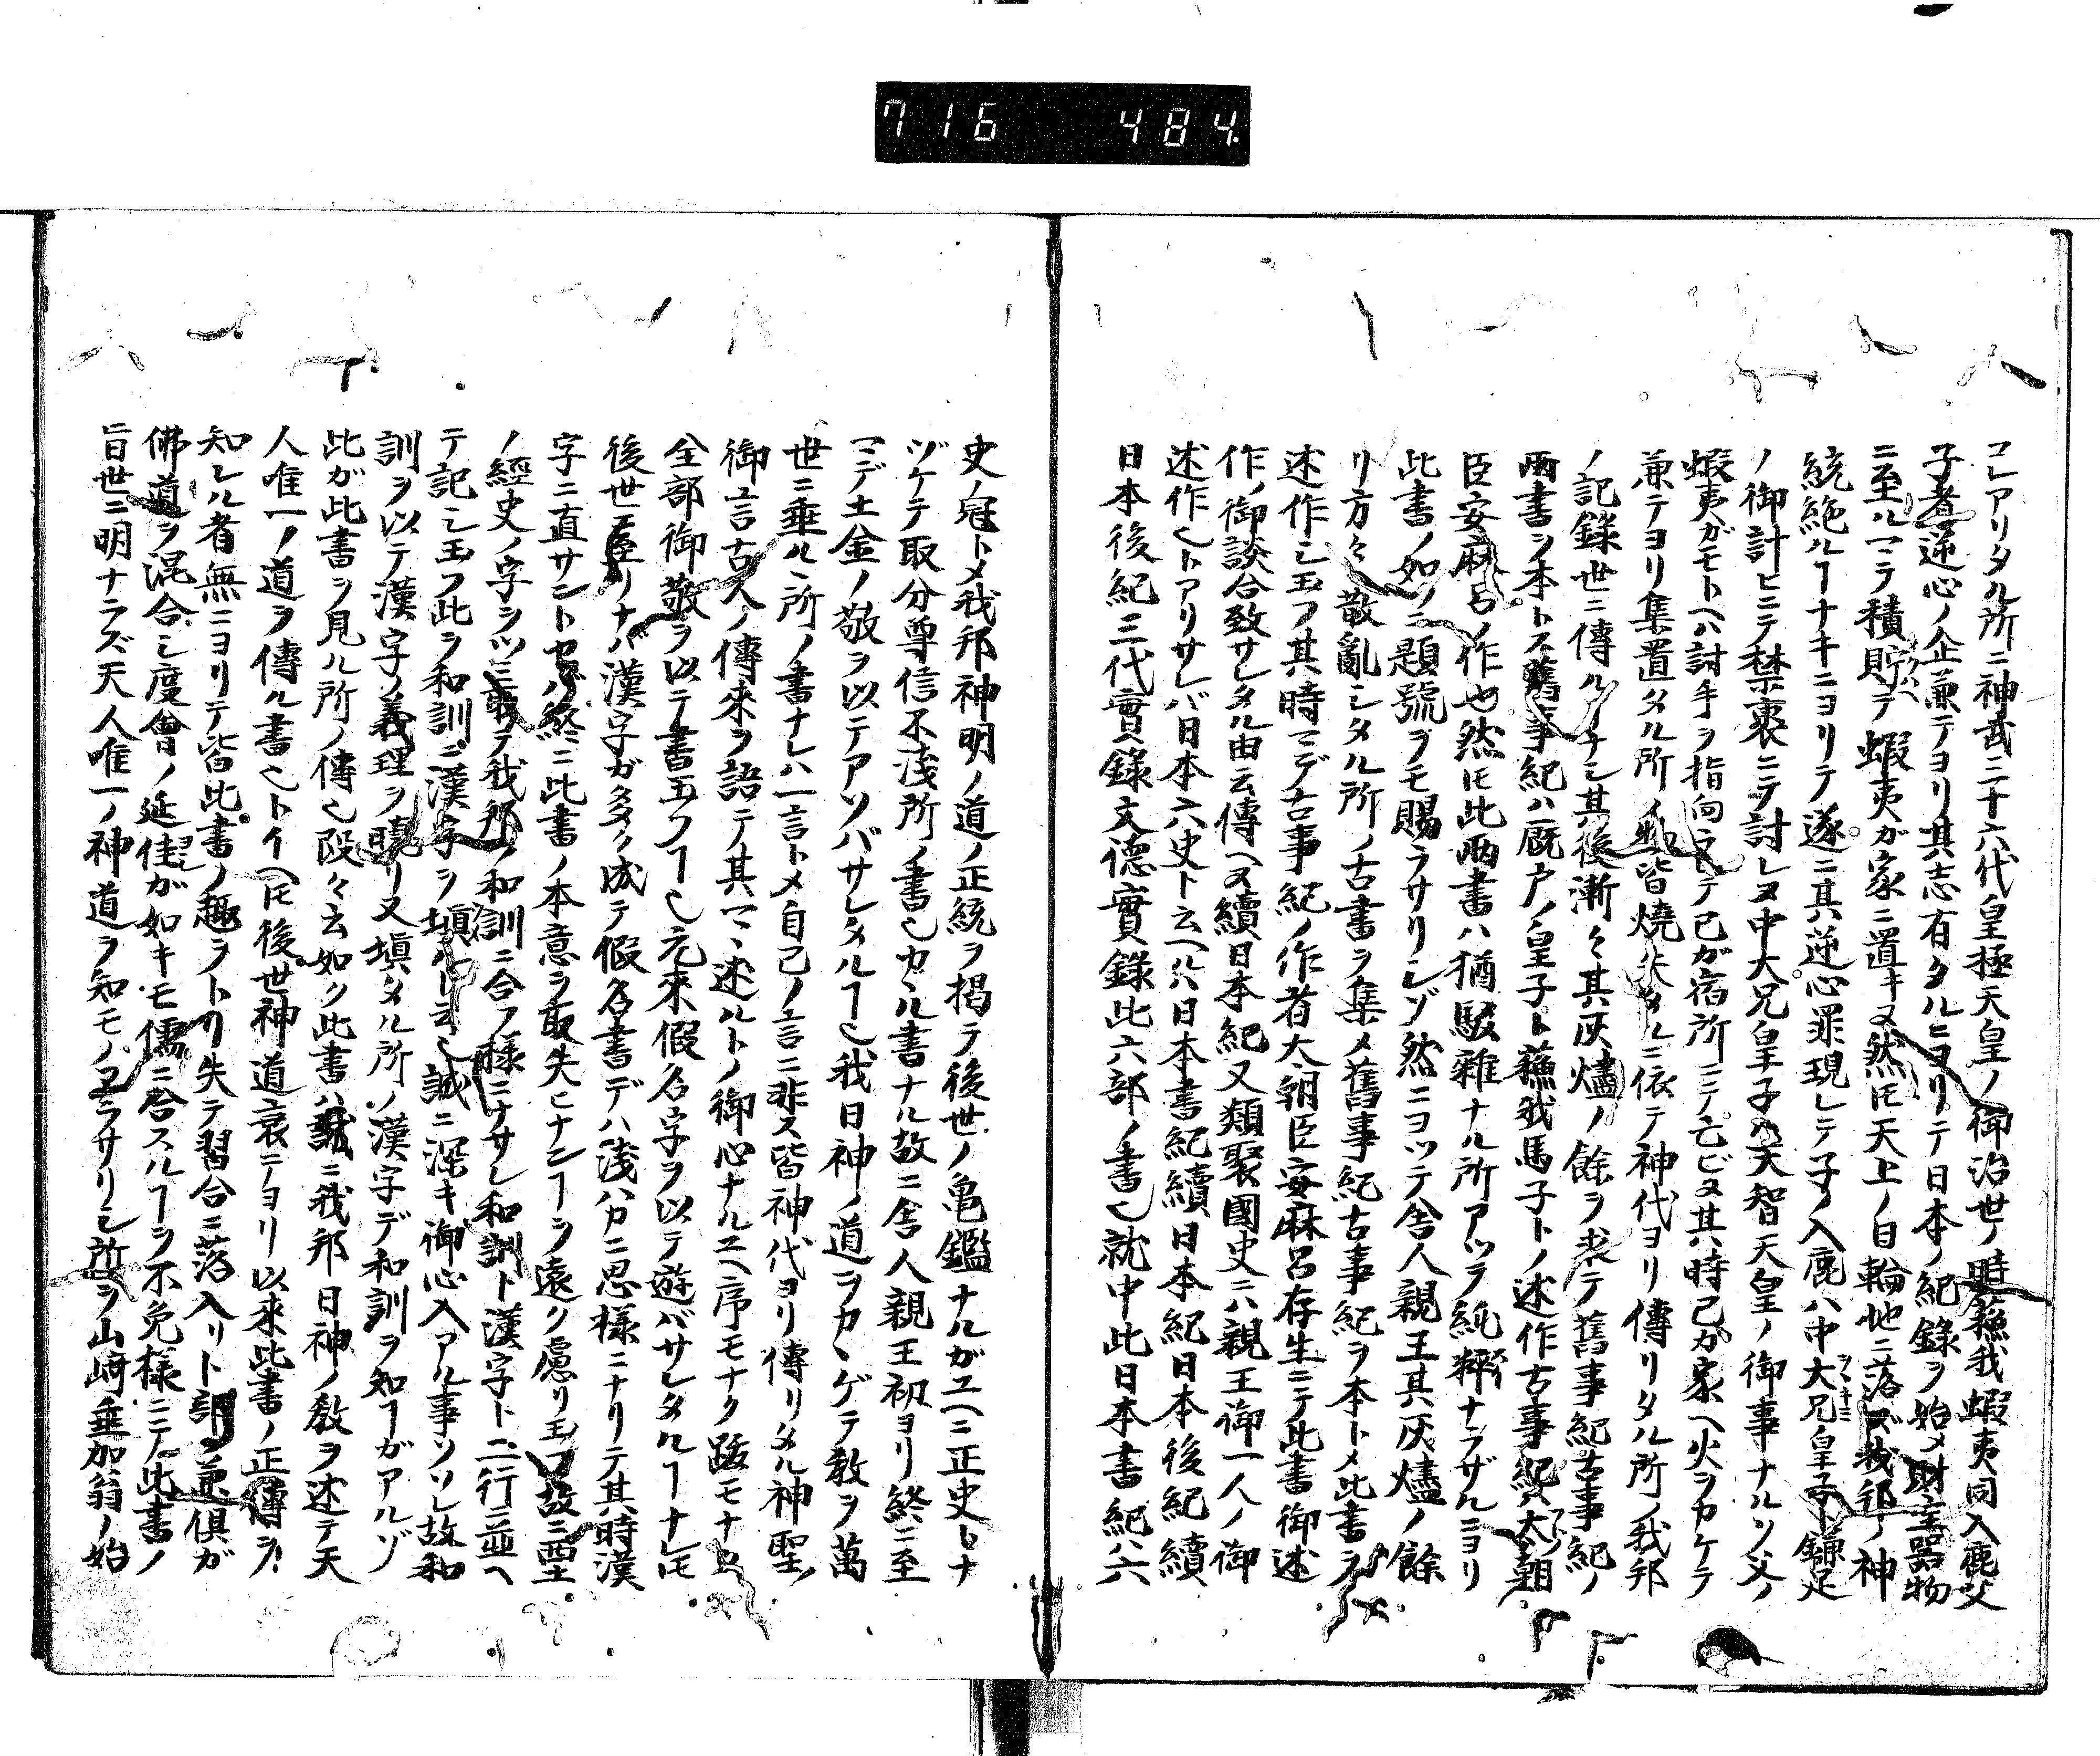 716 484
コレアリタル所ニ神武三十六代皇極天皇ノ御治世ノ時蘇我蝦夷同入鹿父
子者逆心ノ企兼テヨリ其志有タルヒヨリテ日本ノ紀録ヲ始メ財宝器物
ニ至ルマテ積貯テ蝦夷ガ家ニ置キヌ然𪜈天上ノ日輪地ニ落ズ我邦ノ神
統絶ルヿナキニヨリテ遂ニ其逆心罪現レテ子ノ入鹿ハ中大兄皇子ト鎌足
ノ御計ヒニテ禁裏ニテ討レヌ中大兄皇子ハ天智天皇ノ御事ナルソ父ノ
蝦夷ガモトヘハ討手ヲ指向ラレテ已が宿所ニテ亡ビヌ其時己カ家ヘ火ヲカケテ
兼テヨリ集置タル所ノ物皆焼失タルニ依テ神代ヨリ傳リタル所ノ我邦
ノ記録世ニ傳ルヿナシ其後漸々其灰燼ノ餘ヲ求テ舊事紀古事紀ノ
兩書ヲ本トス舊事紀ハ厩戸ノ皇子ト蘇我馬子トノ述作古事紀ハ太朝
臣安麻呂ノ作也然𪜈此兩書ハ猶駁雜ナル所アツテ純粹ナラザルニヨリ
此書ノ如ク題號ヲモ賜ラサリシゾ然ニヨツテ舎人親王其灰燼ノ餘
リ方々散亂シタル所ノ古書ヲ集メ舊事紀古事紀ヲ本トメ此書ヲ
述作シ玉フ其時マデ古事紀ノ作者大朝臣安麻呂存生ニテ此書御述
作ノ御談合致サレタル由云傳ヘヌ續日本紀又類聚國史ニハ親王御一人ノ御
述作ヒトアリサレバ日本六史ト云ヘルハ日本書紀續日本紀日本後紀續
日本後紀三代實録文德實録此六部ノ書也就中此日本書紀ハ六
史ノ冠トメ我邦神明ノ道ノ正統ヲ掲テ後世ノ亀鑑ナルガユヘニ正史トナ
ヅケテ取分尊信不淺所ノ書也カヽル書ナル故ニ舎人親王初ヨリ終ニ至
マデ土金ノ敬ヲ以テアソバサレタルヿ也我日神ノ道ヲカヽゲテ教ヲ萬
世ニ垂ルヽ所ノ書ナレハ一言トメ自己ノ言ニ非ス皆神代ヨリ傳リタル神聖ノ
御言古人ノ傳來ヲ語テ其マヽ述ルトノ御心ナルユヘ序モナク跋モナシ
全部御敬ヲ以テ書玉フヿ也元來假名字ヲ以テ遊バサレタルヿナレ𪜈
後世ニ至リナハ漢字ガ多ク成テ假名書デハ淺ハカニ思様ニナリテ其時漢
字ニ直サントセバ終ニ此書ノ本意ヲ取失ヒナンヿヲ遠ク慮リ玉フ故ニ西土
ノ經史ノ字ヲツミ取テ我邦ノ和訓ニ合フ様ニナサレ和訓ト漢字ト二行ニ並ヘ
テ記シ玉フ此ヲ和訓ニ漢字ヲ塡ルト云也誠ニ深キ御心入アル事ソソレ故和
訓ヲ以テ漢字ノ義理ヲ曉リ又塡タル所ノ漢字デ和訓ヲ知ヿガアルゾ
此が此書ヲ見ル所ノ傳也段々云如ク此書ハ誠ニ我邦日神ノ教ヲ述テ天
人唯一ノ道ヲ傳ル書也トイヘ𪜈後世神道衰テヨリ以來此書ノ正傳ヲ
知レル者無ニヨリテ皆此書ノ趣ヲトリ失テ習合ニ落入リト部ノ兼倶ガ
佛道ヲ混合シ度會ノ延佳が如キモ儒ニ合スルヿヲ不免様ニテ此書ノ
旨世ニ明ナラズ天人唯一ノ神道ヲ知モノヱラサリシ所ヲ山崎垂加翁ノ始